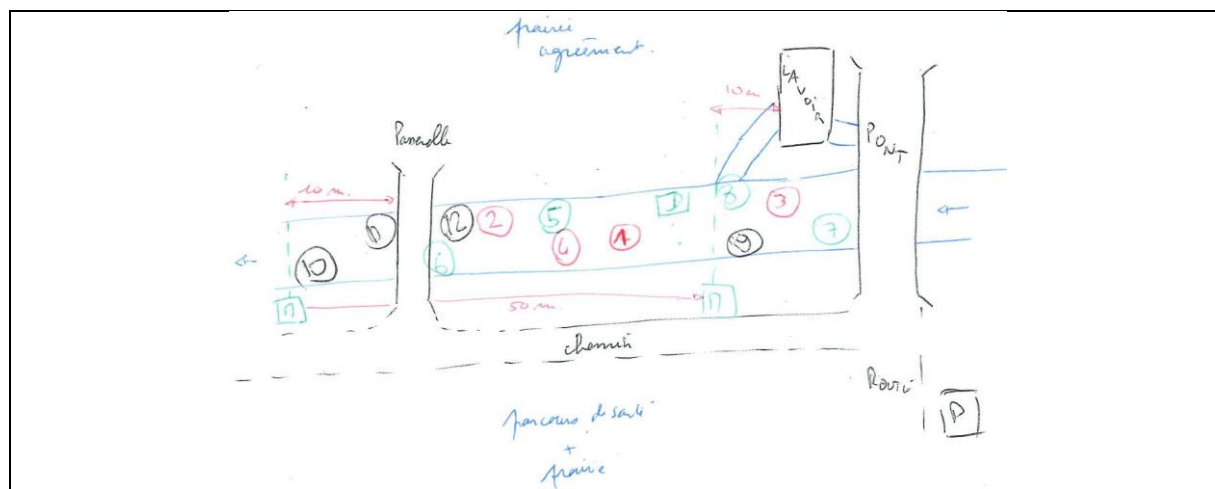 prairie
agrément.
LAVOIR
10 m
PONT
Passerelle
10 m.
11
12
2
5
8
3
10
6
4
1
9
7
50 m.
chemin
ROUTE
P
parcours de santé
+
prairie